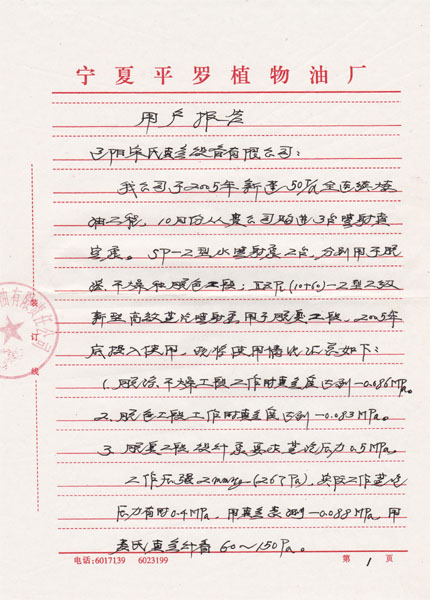 宁夏平罗植物油厂
用户报告
真空设备有限公司:
我公司于2005年新建50吨/全连续炼
油工程,10月份从贵公司购进3台喷射真
空泵。SP-2型水喷射泵2台,分别用于脱
干燥和脱色工段;(10+60)-2型2级
新型高效蒸汽喷射泵用于脱臭工段,2005年
底投入使用,现将使用情况汇总如下:
1. 脱 干燥工段工作时真空度达到-0.086MPa。
2. 脱色工段工作时真空度达到-0.083MPa。
3. 脱臭工段设计泵要求蒸汽压力0.5MPa。
工作压强2mmHg(267Pa),实际工作蒸汽
压力有时0.4MPa,用真空表测-0.088MPa,用
麦氏真空计看60~150Pa。
装订线
电话:6017139 6023199
第 1 页